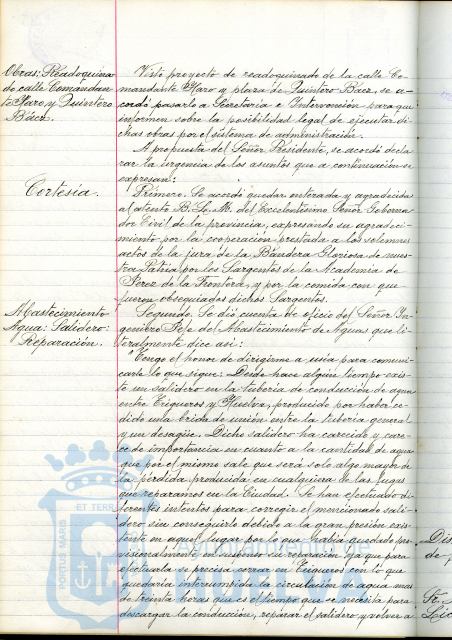 Obras: Readoquinado
de calle Comandan-
te Haro y Quintero
Báez.
Visto proyecto de readoquinado de la calle Co-
mandante Haro y plaza de Quintero Báez, se a-
cordó pasarlo a Secretaría e Intervención para que
informen sobre la posibilidad legal de ejecutar di-
chas obras por el sistema de administración.
A propuesta del Señor Presidente, se acordó decla-
rar la urgencia de los asuntos que a continuación se
expresan:
Cortesía.
Primero. Se acordó quedar enterada y agradecida
al atento B. L. M. del Excelentísimo Señor Goberna-
dor Civil de la provincia, expresando su agradeci-
miento por la cooperación prestada a los solemnes
actos de la jura de la Bandera Gloriosa de nues-
tra Patria por los Sargentos de la Academia de
Jerez de la Frontera, y por la comida con que
fueron obsequiados dichos Sargentos.
Abastecimiento
Agua: Salidero:
Reparación.
Segundo. Se dió cuenta de oficio del Señor In-
geniero Jefe del Abastecimiento de Aguas que li-
teralmente dice así:
"Tengo el honor de dirigirme a usía para comuni-
carle lo que sigue: Desde hace algún tiempo exis-
te un salidero en la tubería de conducción de agua
entre Trigueros y Huelva, producido por haber ce-
dido una brida de unión entre la tubería general
y un desagüe. Dicho salidero ha carecido y care-
ce de importancia en cuanto a la cantidad de agua
que por el mismo sale que será solo algo mayor de
la pérdida producida en cualquiera de las fugas
que reparamos en la Ciudad. Se han efectuado di-
ferentes intentos para corregir el mencionado sali-
dero sin conseguirlo debido a la gran presión exis-
tente en aquel lugar por lo que había quedado pro-
visionalmente en suspenso su reparación ya que para
efectuarla se precisa cerrar en Trigueros con lo que
quedaría interrumpida la circulación de agua mas
de treinta horas que es el tiempo que se necesita para
descargar la conducción, reparar el salidero y volver a
PORTUS MARIS
ET TERR